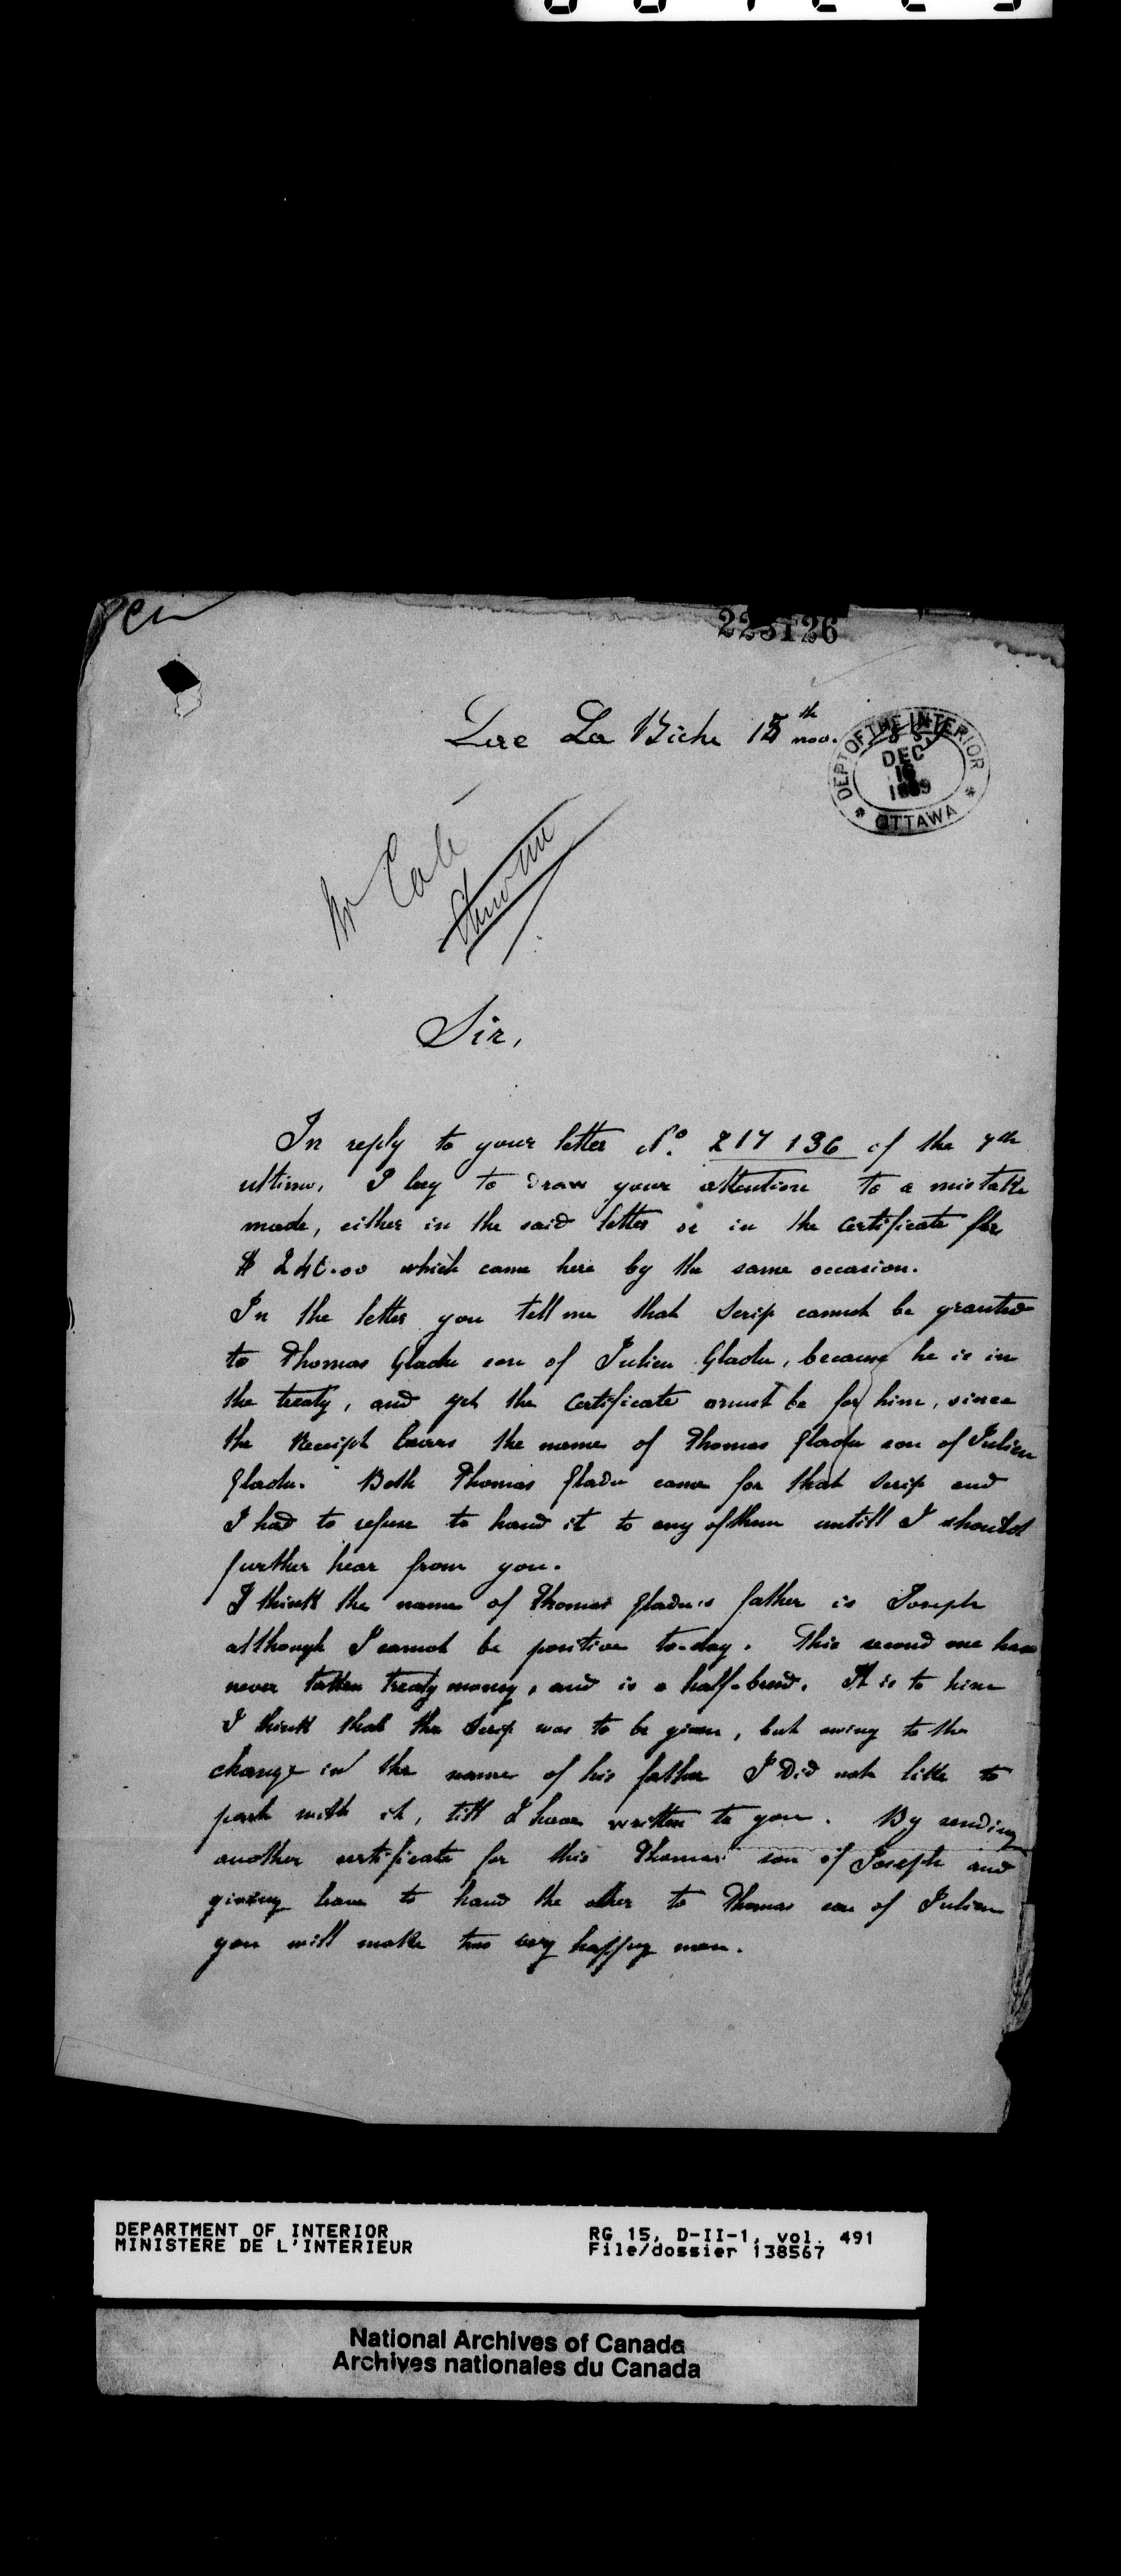 223126
Lac La Biche 15th nov. 1889
DEPT OF THE INTERIOR
DEC
16
1889
* OTTAWA *
Mr
Sir,
In reply to your letter No. 217 136 of the 7th
ultimo, I beg to draw your attention to a mistake
made, either in the said letter or in the certificate for
$ 240.00 which came here by the same occasion.
In the letter you tell me that Scrip cannot be granted
to Thomas Gladu son of Julien Gladu, because he is in
the treaty, and yet the certificate must be for him, since
the Receipt bears the name of Thomas Gladu son of Julien
Gladu. Both Thomas Gladu came for that Scrip and
I had to refuse to hand it to any of them untill I should
further hear from you.
I think the name of Thomas Gladu's father is Joseph
although I cannot be positive to-day. This second one has
never taken treaty money, and is a half-breed. It is to him
I think that the Scrip was to be given, but owing to the
change in the name of his father I did not like to
part with it, till I have written to you. By sending
another certificate for this Thomas son of Joseph and
giving leave to hand the other to Thomas son of Julien
you will make two very happy men.
DEPARTMENT OF INTERIOR
MINISTERE DE L'INTERIEUR
RG 15, D-II-1, vol. 491
File/dossier 138567
National Archives of Canada
Archives nationales du Canada